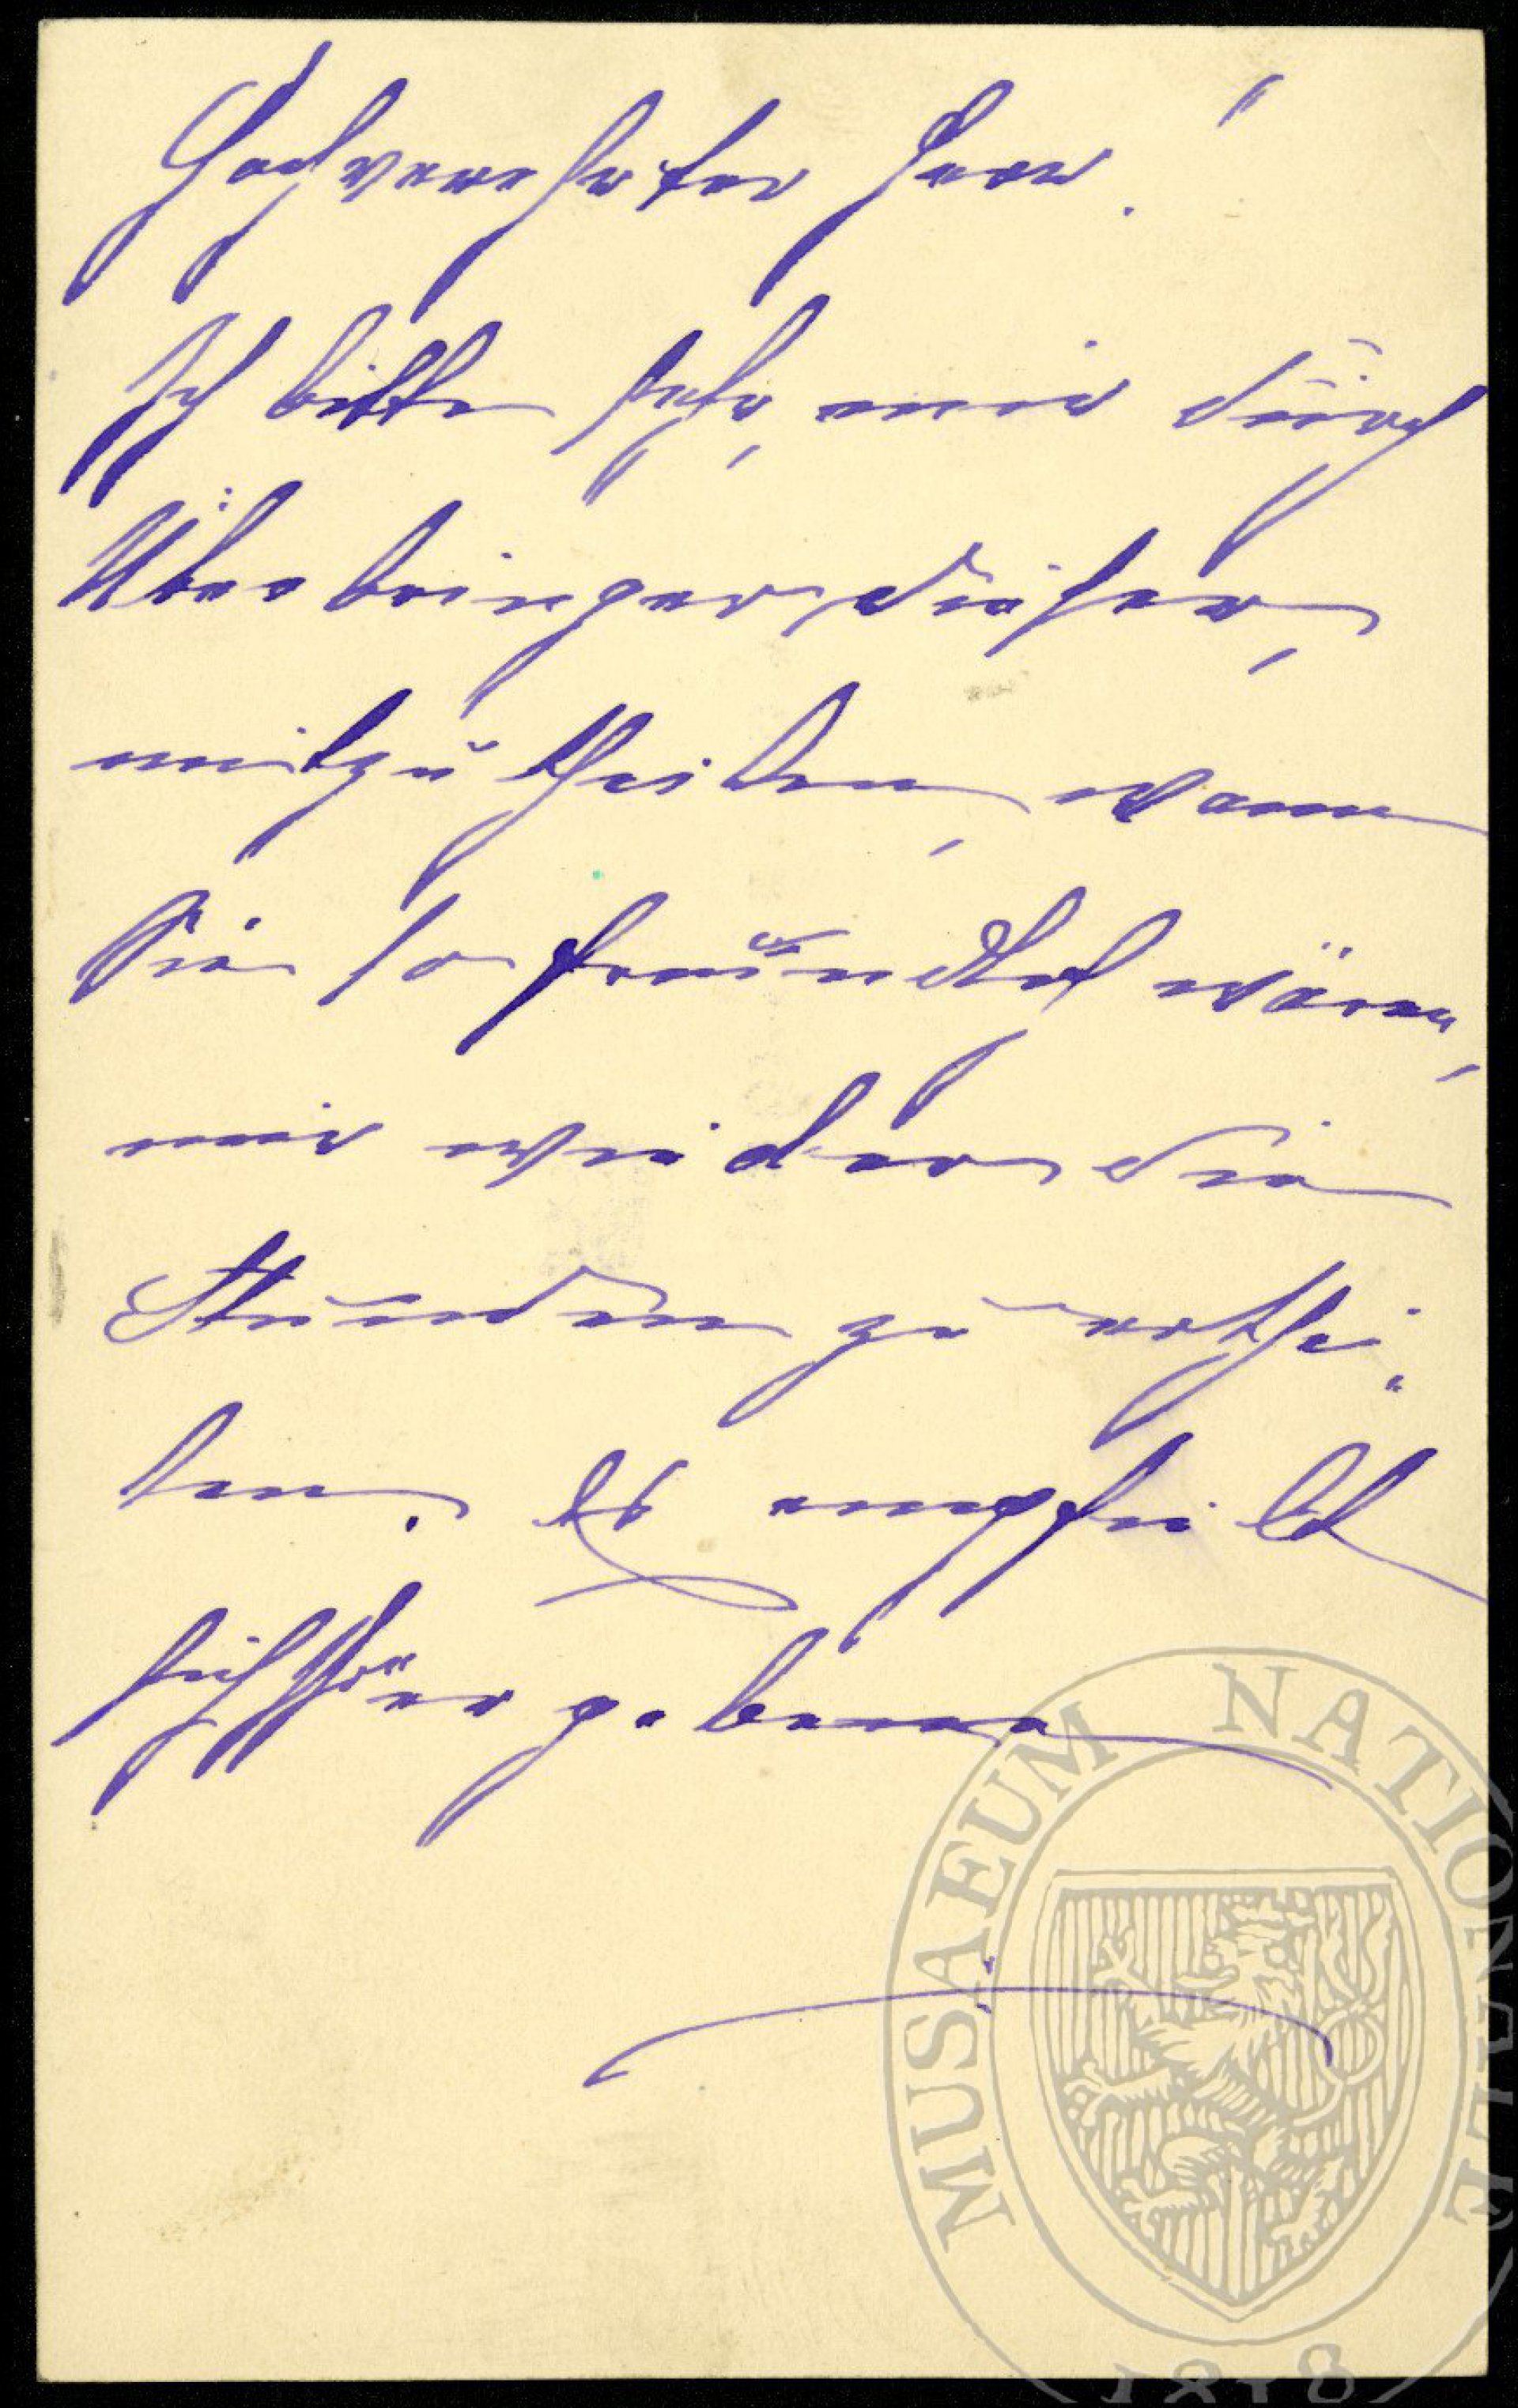 Hochverehrter Herr!
Ich bitte sehr, mir durch
Überbringer dieser,
mitzutheilen, wann
Sie so freundlich wären,
mir wieder die
Stunden zu erthei„
len. Es empfielt
sich Ihr ergebener
MUSAEUM NATIONALE
1818